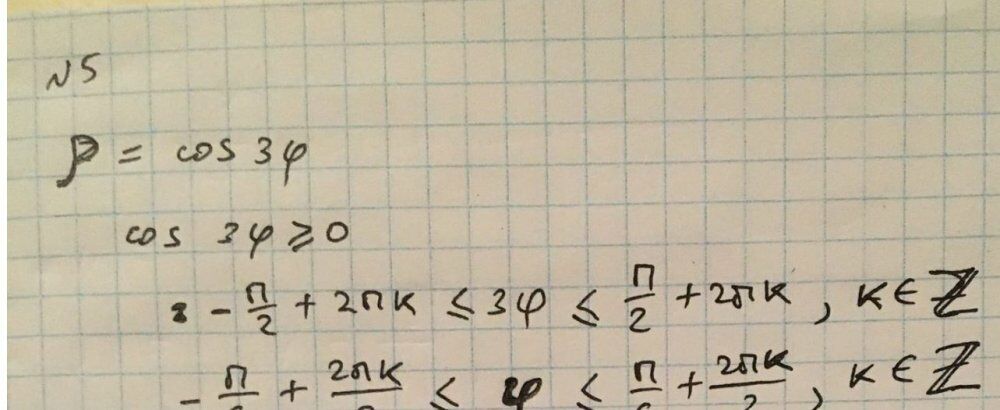 N5
ρ = cos 3φ
cos 3φ ≥ 0
- π/2 + 2πk ≤ 3φ ≤ π/2 + 2πk , k ∈ ℤ
- π/ + 2πk/ ≤ φ ≤ π/ + 2πk/ , k ∈ ℤ